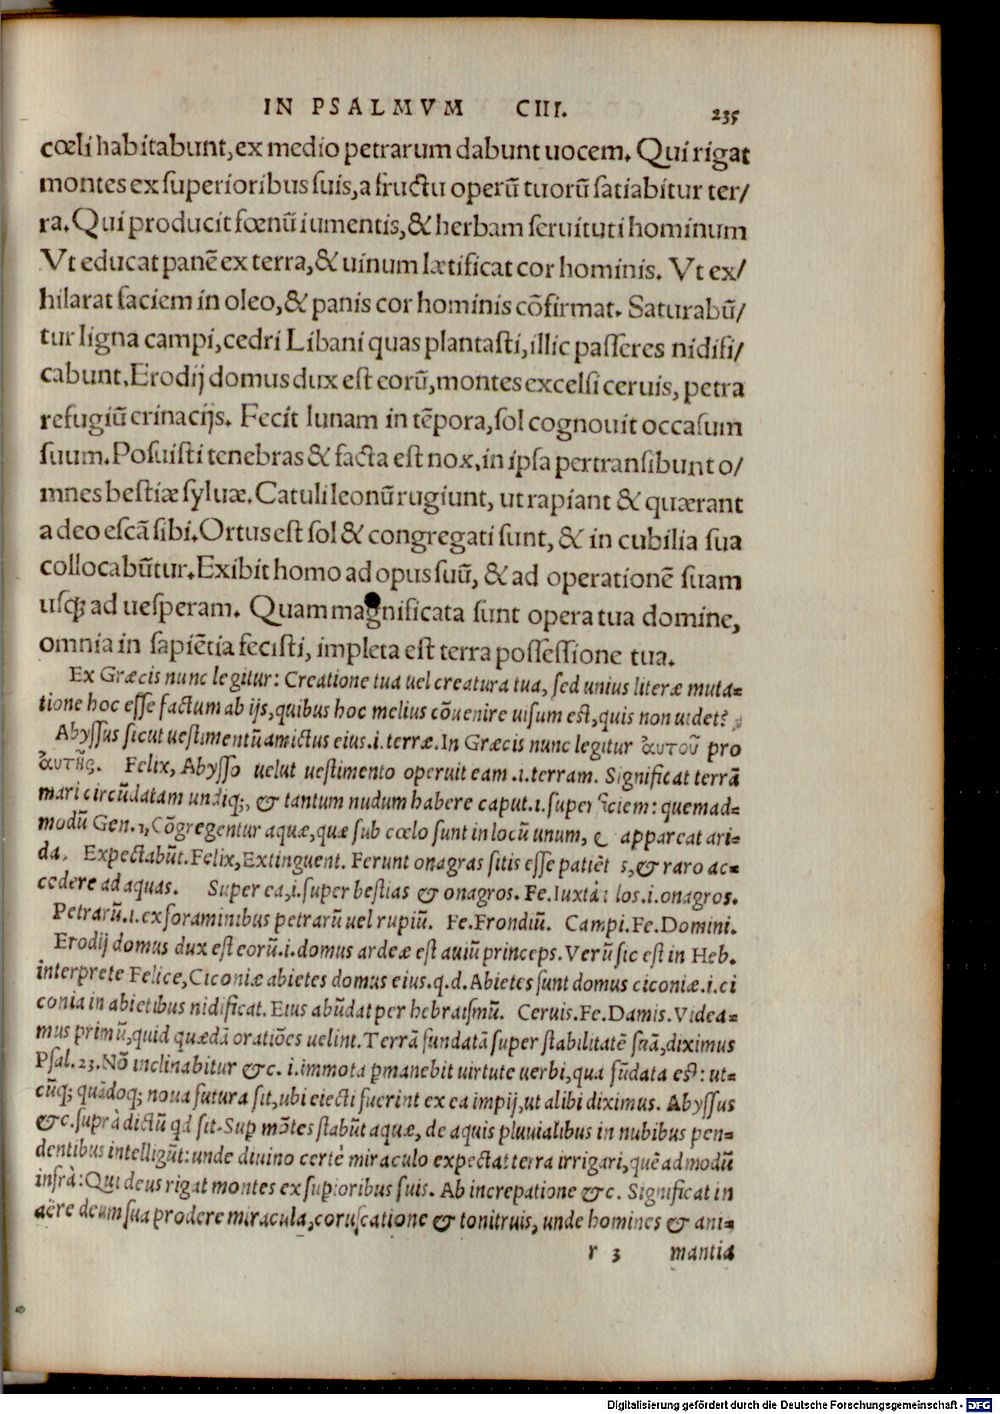 IN PSALMVM CIII. 235
cœli habitabunt, ex medio petrarum dabunt uocem. Qui rigat
montes ex superioribus suis, a fructu operũ tuorũ satiabitur ter/
ra. Qui producit fœnũ iumentis, & herbam seruituti hominum
Vt educat panẽ ex terra, & uinum lætificat cor hominis. Vt ex/
hilarat faciem in oleo, & panis cor hominis cõfirmat. Saturabũ/
tur ligna campi, cedri Libani quas plantasti, illic passeres nidifi/
cabunt. Erodij domus dux est eorũ, montes excelsi ceruis, petra
refugiũ erinacijs. Fecit lunam in tẽpora, sol cognouit occasum
suum. Posuisti tenebras & facta est nox, in ipsa pertransibunt o/
mnes bestiæ syluæ. Catuli leonũ rugiunt, ut rapiant & quærant
a deo escã sibi. Ortus est sol & congregati sunt, & in cubilia sua
collocabũtur. Exibit homo ad opus suũ, & ad operationẽ suam
usq; ad uesperam. Quam magnificata sunt opera tua domine,
omnia in sapiẽtia fecisti, impleta est terra possessione tua.
Ex Græcis nunc legitur: Creatione tua uel creatura tua, sed unius literæ muta=
tione hoc esse factum ab ijs, quibus hoc melius cõuenire uisum est, quis non uidet?
Abyssus sicut uestimentũ amictus eius .i. terræ. In Græcis nunc legitur ἀυτοῦ pro
ἀυτῆς. Felix, Abysso uelut uestimento operuit eam .i. terram. Significat terrã
mari circũdatam undiq;, & tantum nudum habere caput .i. super ciem: quemad=
modũ Gen. 1, Cõgregentur aquæ, quæ sub cœlo sunt in locũ unum, appareat ari=
da. Expectabũt. Felix, Extinguent. Ferunt onagras sitis esse patiẽt s, & raro ac=
cedere ad aquas. Super ea, i. super bestias & onagros. Fe. Iuxta: los .i. onagros.
Petrarũ .i. ex foraminibus petrarũ uel rupiũ. Fe. Frondiũ. Campi. Fe. Domini.
Erodij domus dux est eorũ .i. domus ardeæ est auiũ princeps. Verũ sic est in Heb.
interprete Felice, Ciconiæ abietes domus eius. q. d. Abietes sunt domus ciconiæ .i. ci
conia in abietibus nidificat. Eius abũdat per hebraismũ. Ceruis. Fe. Damis. Videa=
mus primũ, quid quædã oratiões uelint. Terrã fundatã super stabilitatẽ suã, diximus
Psal. 23. Nõ inclinabitur &c. i. immota ꝑmanebit uirtute uerbi, qua fũdata est: ut=
cũq; quãdoq; noua futura sit, ubi eiecti fuerint ex ea impij, ut alibi diximus. Abyssus
&c. suprà dictũ qd sit. Suꝑ mõtes stabũt aquæ, de aquis pluuialibus in nubibus pen=
dentibus intelligũt: unde diuino certè miraculo expectat terra irrigari, quẽ admodũ
infrà: Qui deus rigat montes ex suꝑioribus suis. Ab increpatione &c. Significat in
aëre deum sua prodere miracula, coruscatione & tonitruis, unde homines & ani=
r 3 mantia
Digitalisierung gefördert durch die Deutsche Forschungsgemeinschaft - DFG